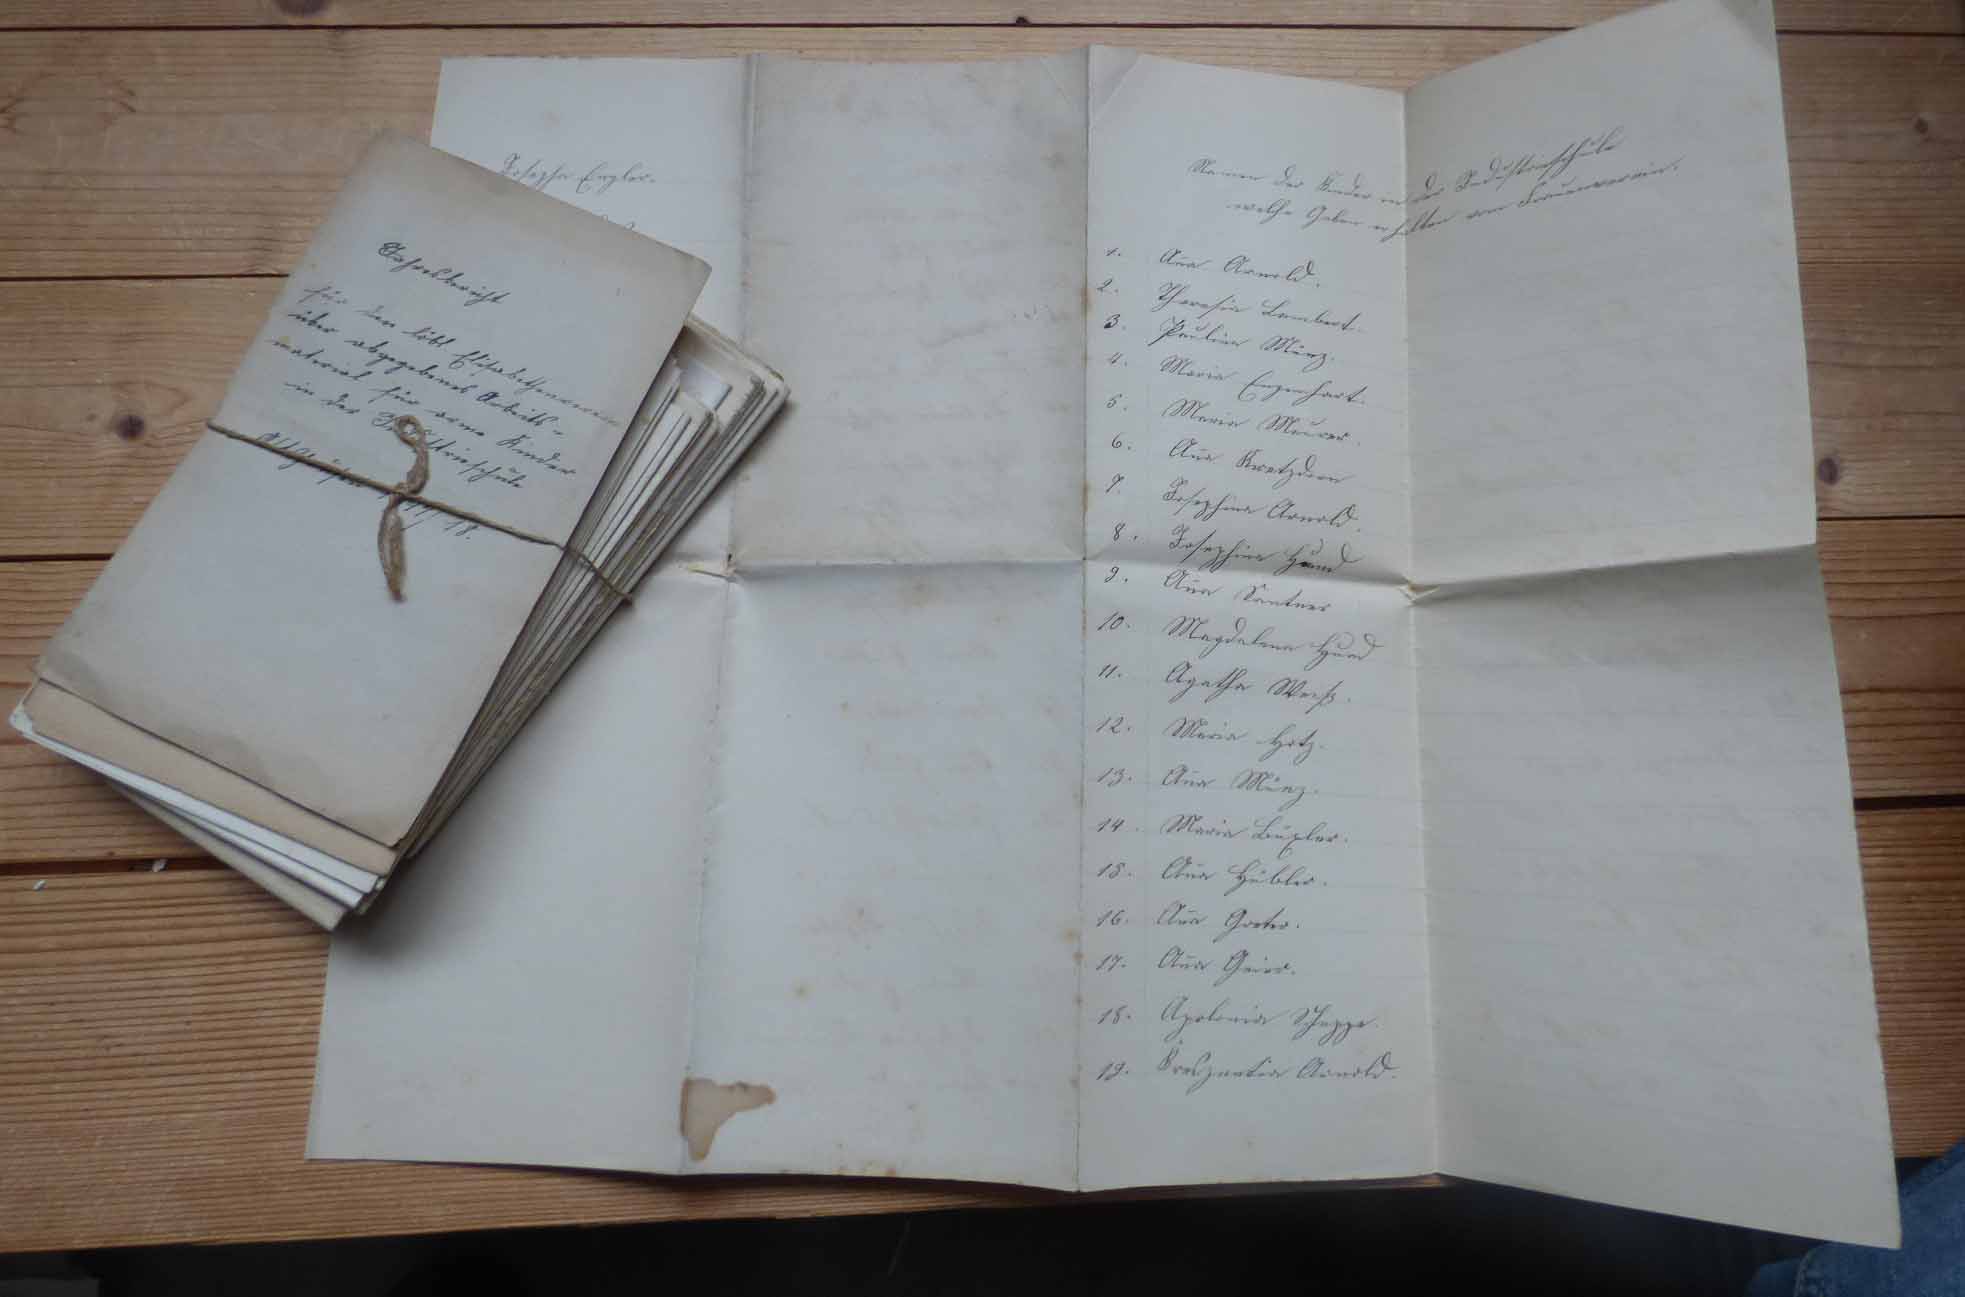 Jahresbericht
für den löbl Elisabethenverein
über abgegebenes Arbeits-
material für arme Kinder
in der Industrieschule
18.
Josepha Engler.
Namen der Kinder in der Industrieschule
welche Gaben erhalten vom Frauenverein.
1. Anna Arnold.
2. Theresia Lambert.
3. Paulina Münz.
4. Maria Engenhart.
5. Maria Maurer.
6. Anna Kretzdorn
7. Josephina Arnold.
8. Josephina Hund
9. Anna Kantner
10. Magdalena Hund
11. Agatha Weiß.
12. Maria Hotz.
13. Anna Münz.
14. Maria Bugler.
15. Anna Hübler.
16. Anna Greter.
17. Anna Geier.
18. Apolonia Schoppe.
19. Kreszentia Arnold.